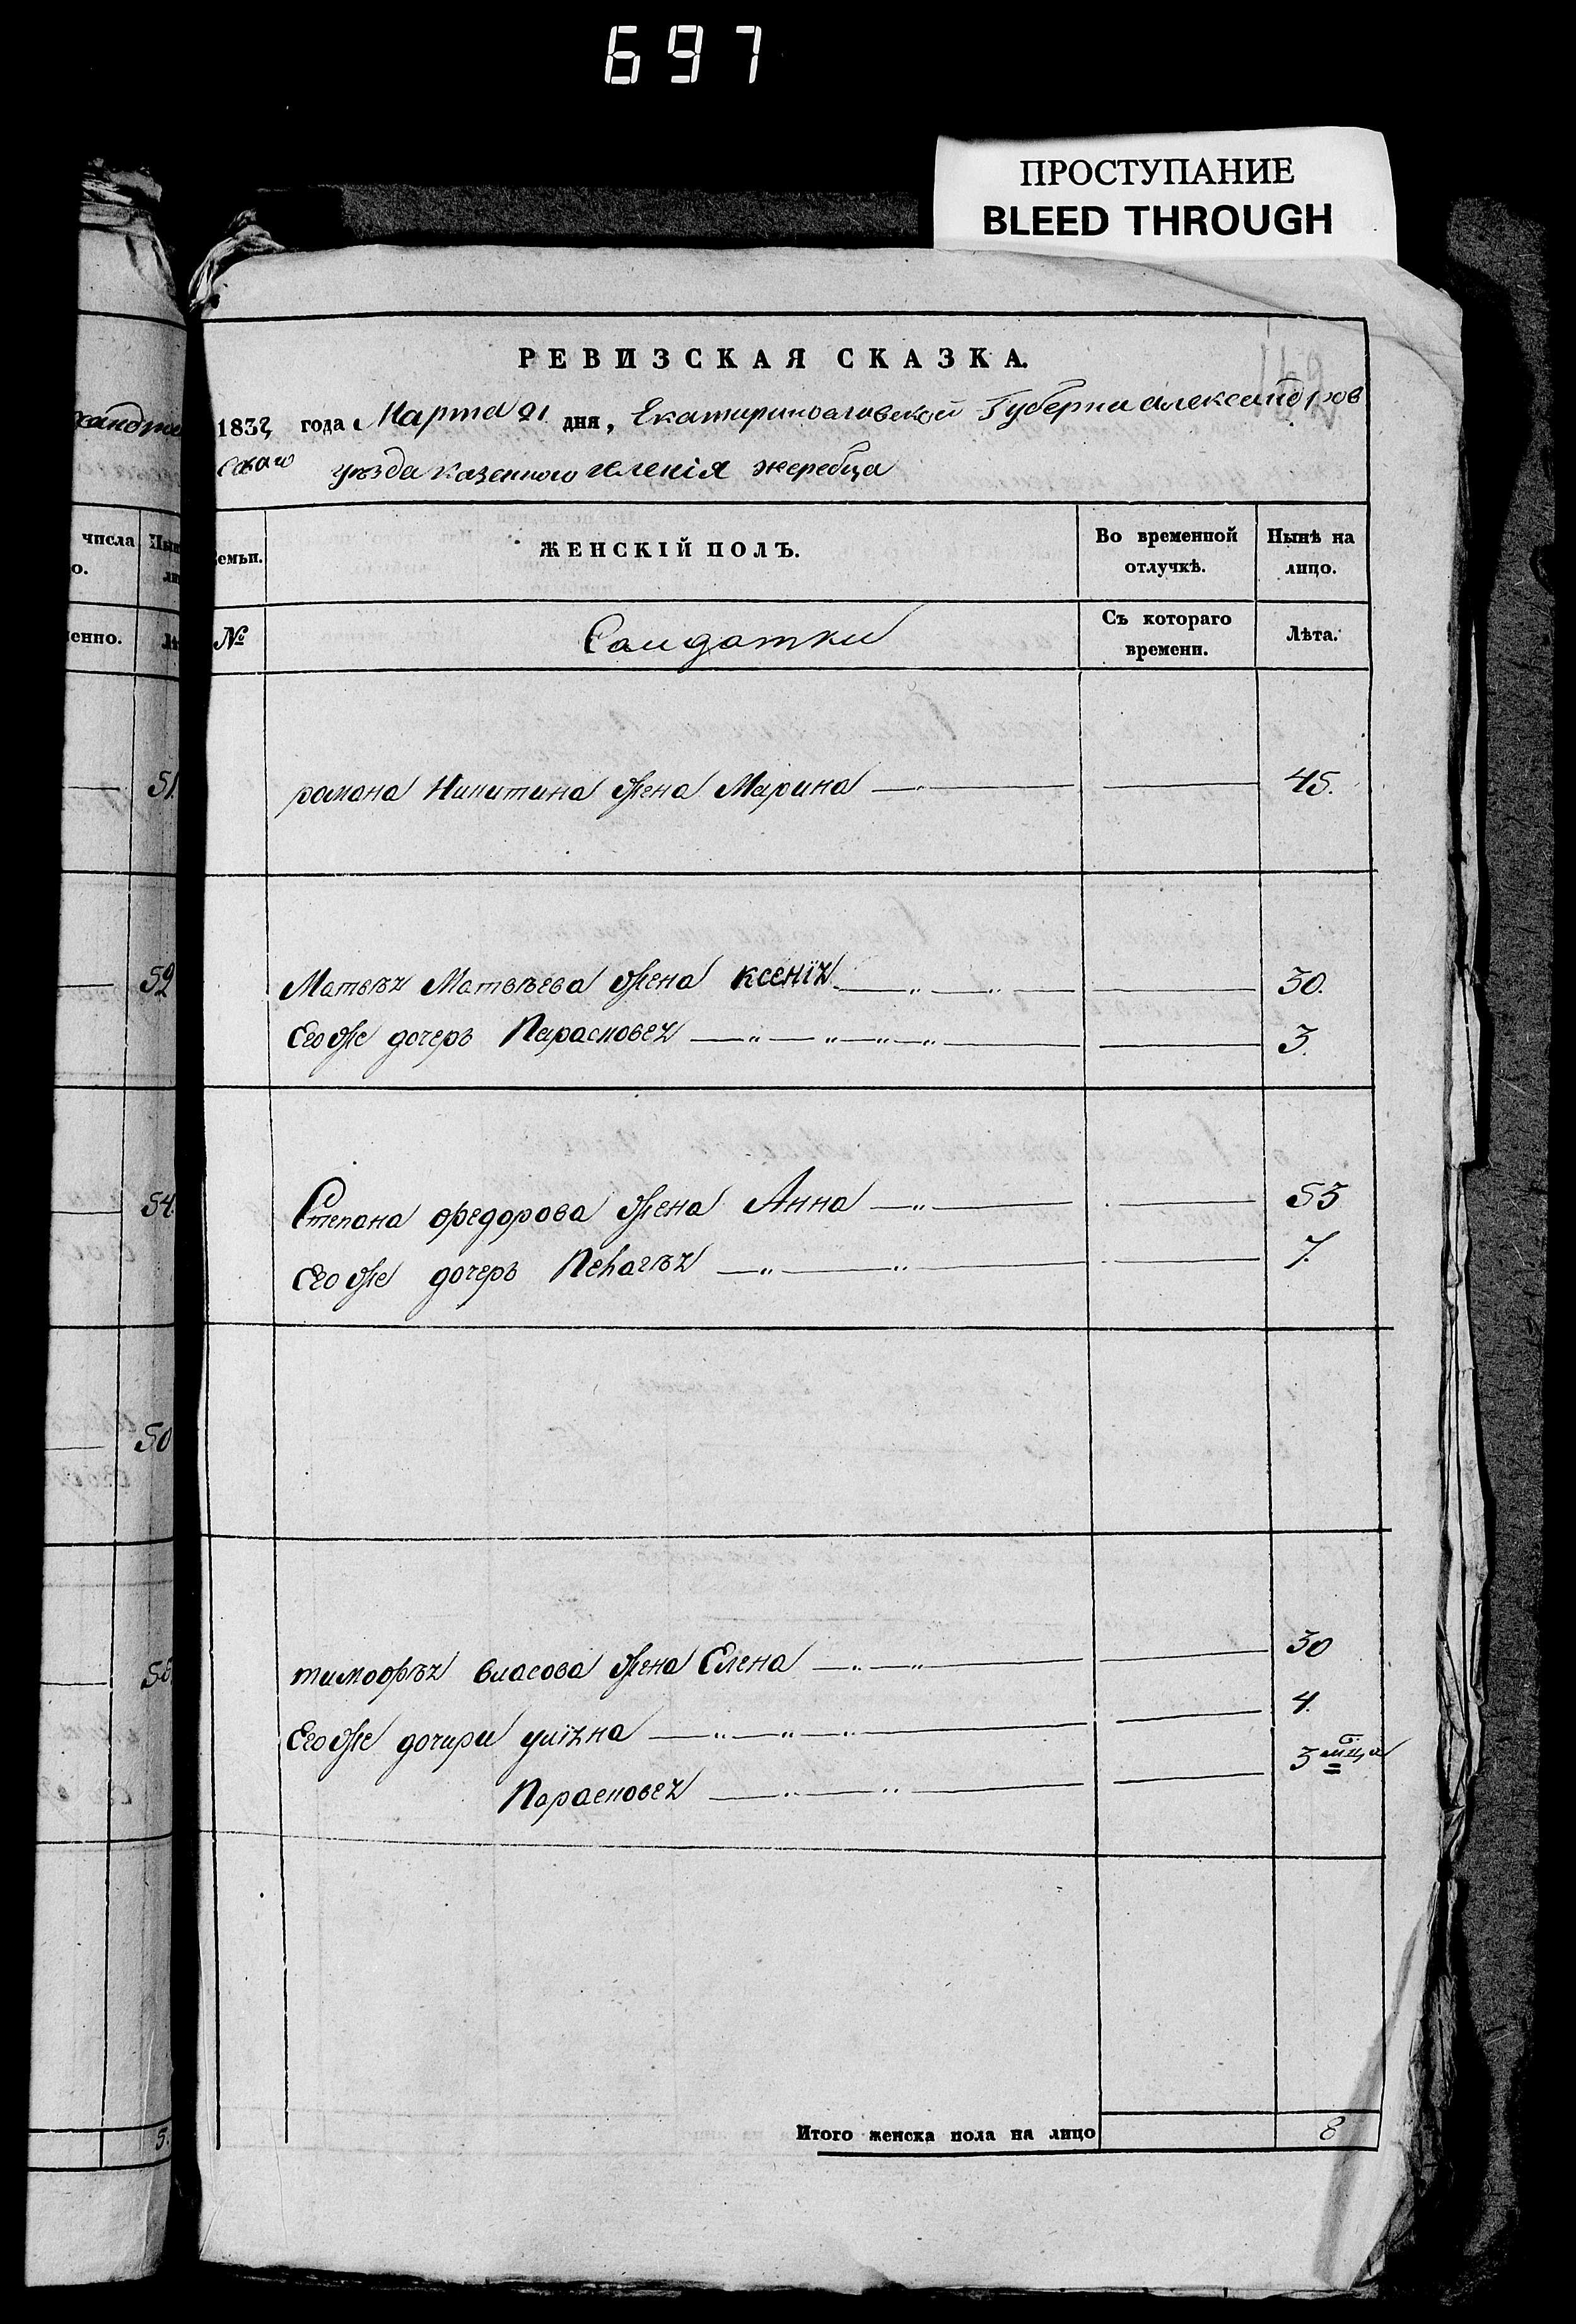 697
ПРОСТУПАНИЕ
BLEED THROUGH
РЕВИЗСКАЯ СКАЗКА.
года Марта 21 дня, Екатиринославской Губерни александров
скаго уѣзда казенного селенія жеребца
числа
о.
енно.
емьи.
ЖЕНСКІЙ ПОЛЪ.
Во временной
отлучкѣ.
Нынѣ на
лицо.
№
Солдатки
Съ котораго
времени.
Лѣта.
51.
романа Никитина жена Марина 45.
52
Матвѣя Матвѣева жена ксенія 30.
Егоже дочеръ Парасковея 3.
54.
Степана федорова жена Анна 53
Егоже дочеръ Пелагѣя 7.
50
тимофѣя власова жена Елена 30
Егоже дочири улїяна 4.
Парасковея 3 мца
Итого женска пола на лицо 8
5.